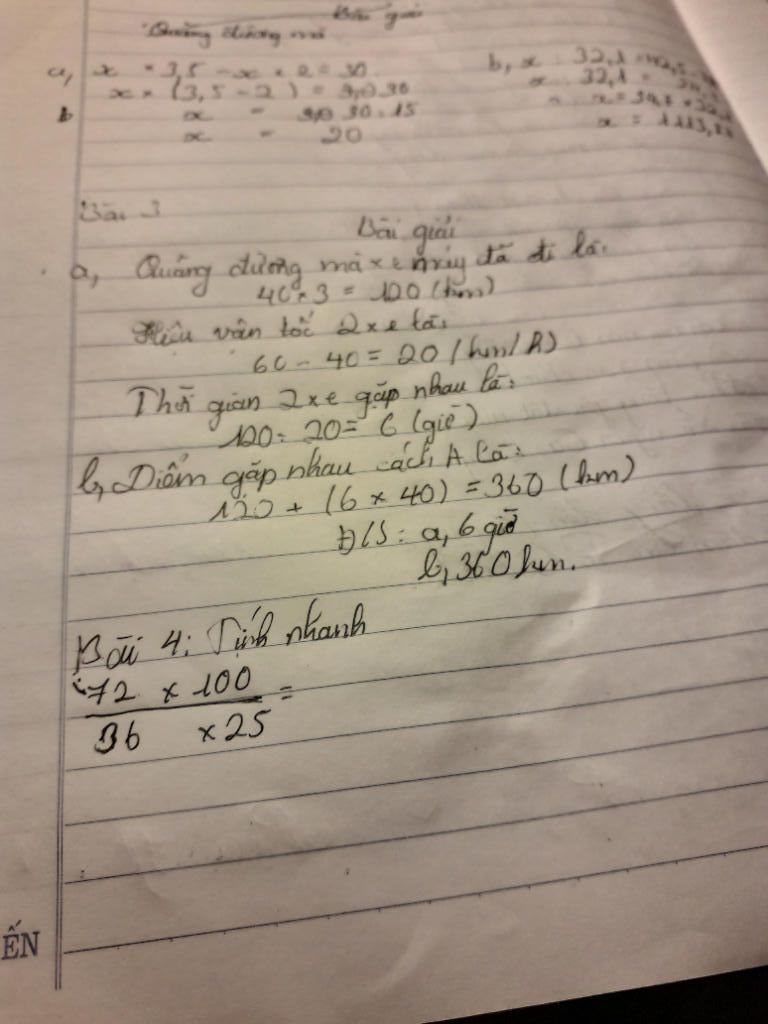 Bài giải
Quãng đường mà
a, x × 3,5 - x × 2 = 30
x × (3,5 - 2) = 30
b x = 30 : 1,5
x = 20
b, x : 32,1
x : 32,1 =
x =
x = 1113,
Bài 3
Bài giải
a, Quãng đường mà xe máy đã đi là:
40 × 3 = 120 (km)
Hiệu vân tốc 2 xe là:
60 - 40 = 20 (km/h)
Thời gian 2 xe gặp nhau là:
120 : 20 = 6 (giờ)
b, Diểm gặp nhau cách A là:
120 + (6 × 40) = 360 (km)
Đ/S: a, 6 giờ
b, 360 km.
Bài 4: Tính nhanh
72 × 100 =
36 × 25
ẾN